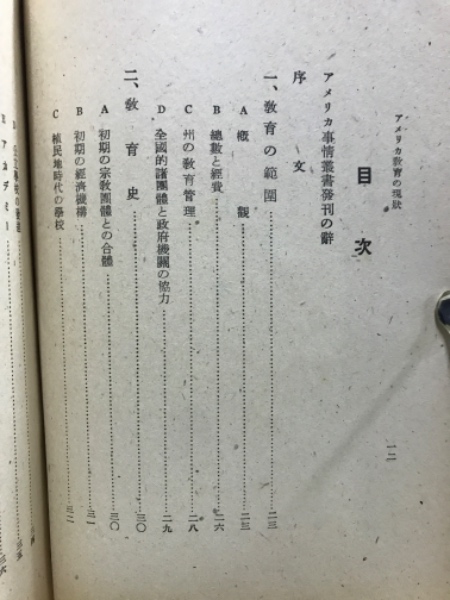 アメリカ敎育の現狀
一二
目次
アメリカ事情叢書發刊の辭
序文
一、敎育の範圍……二三
A 槪觀……二三
B 總數と經費……二六
C 州の敎育管理……二八
D 全國的諸團體と政府機關の協力……二九
二、敎育史……三〇
A 初期の宗敎團體との合體……三〇
B 初期の經濟機構……三一
C 植民地時代の學校……三二